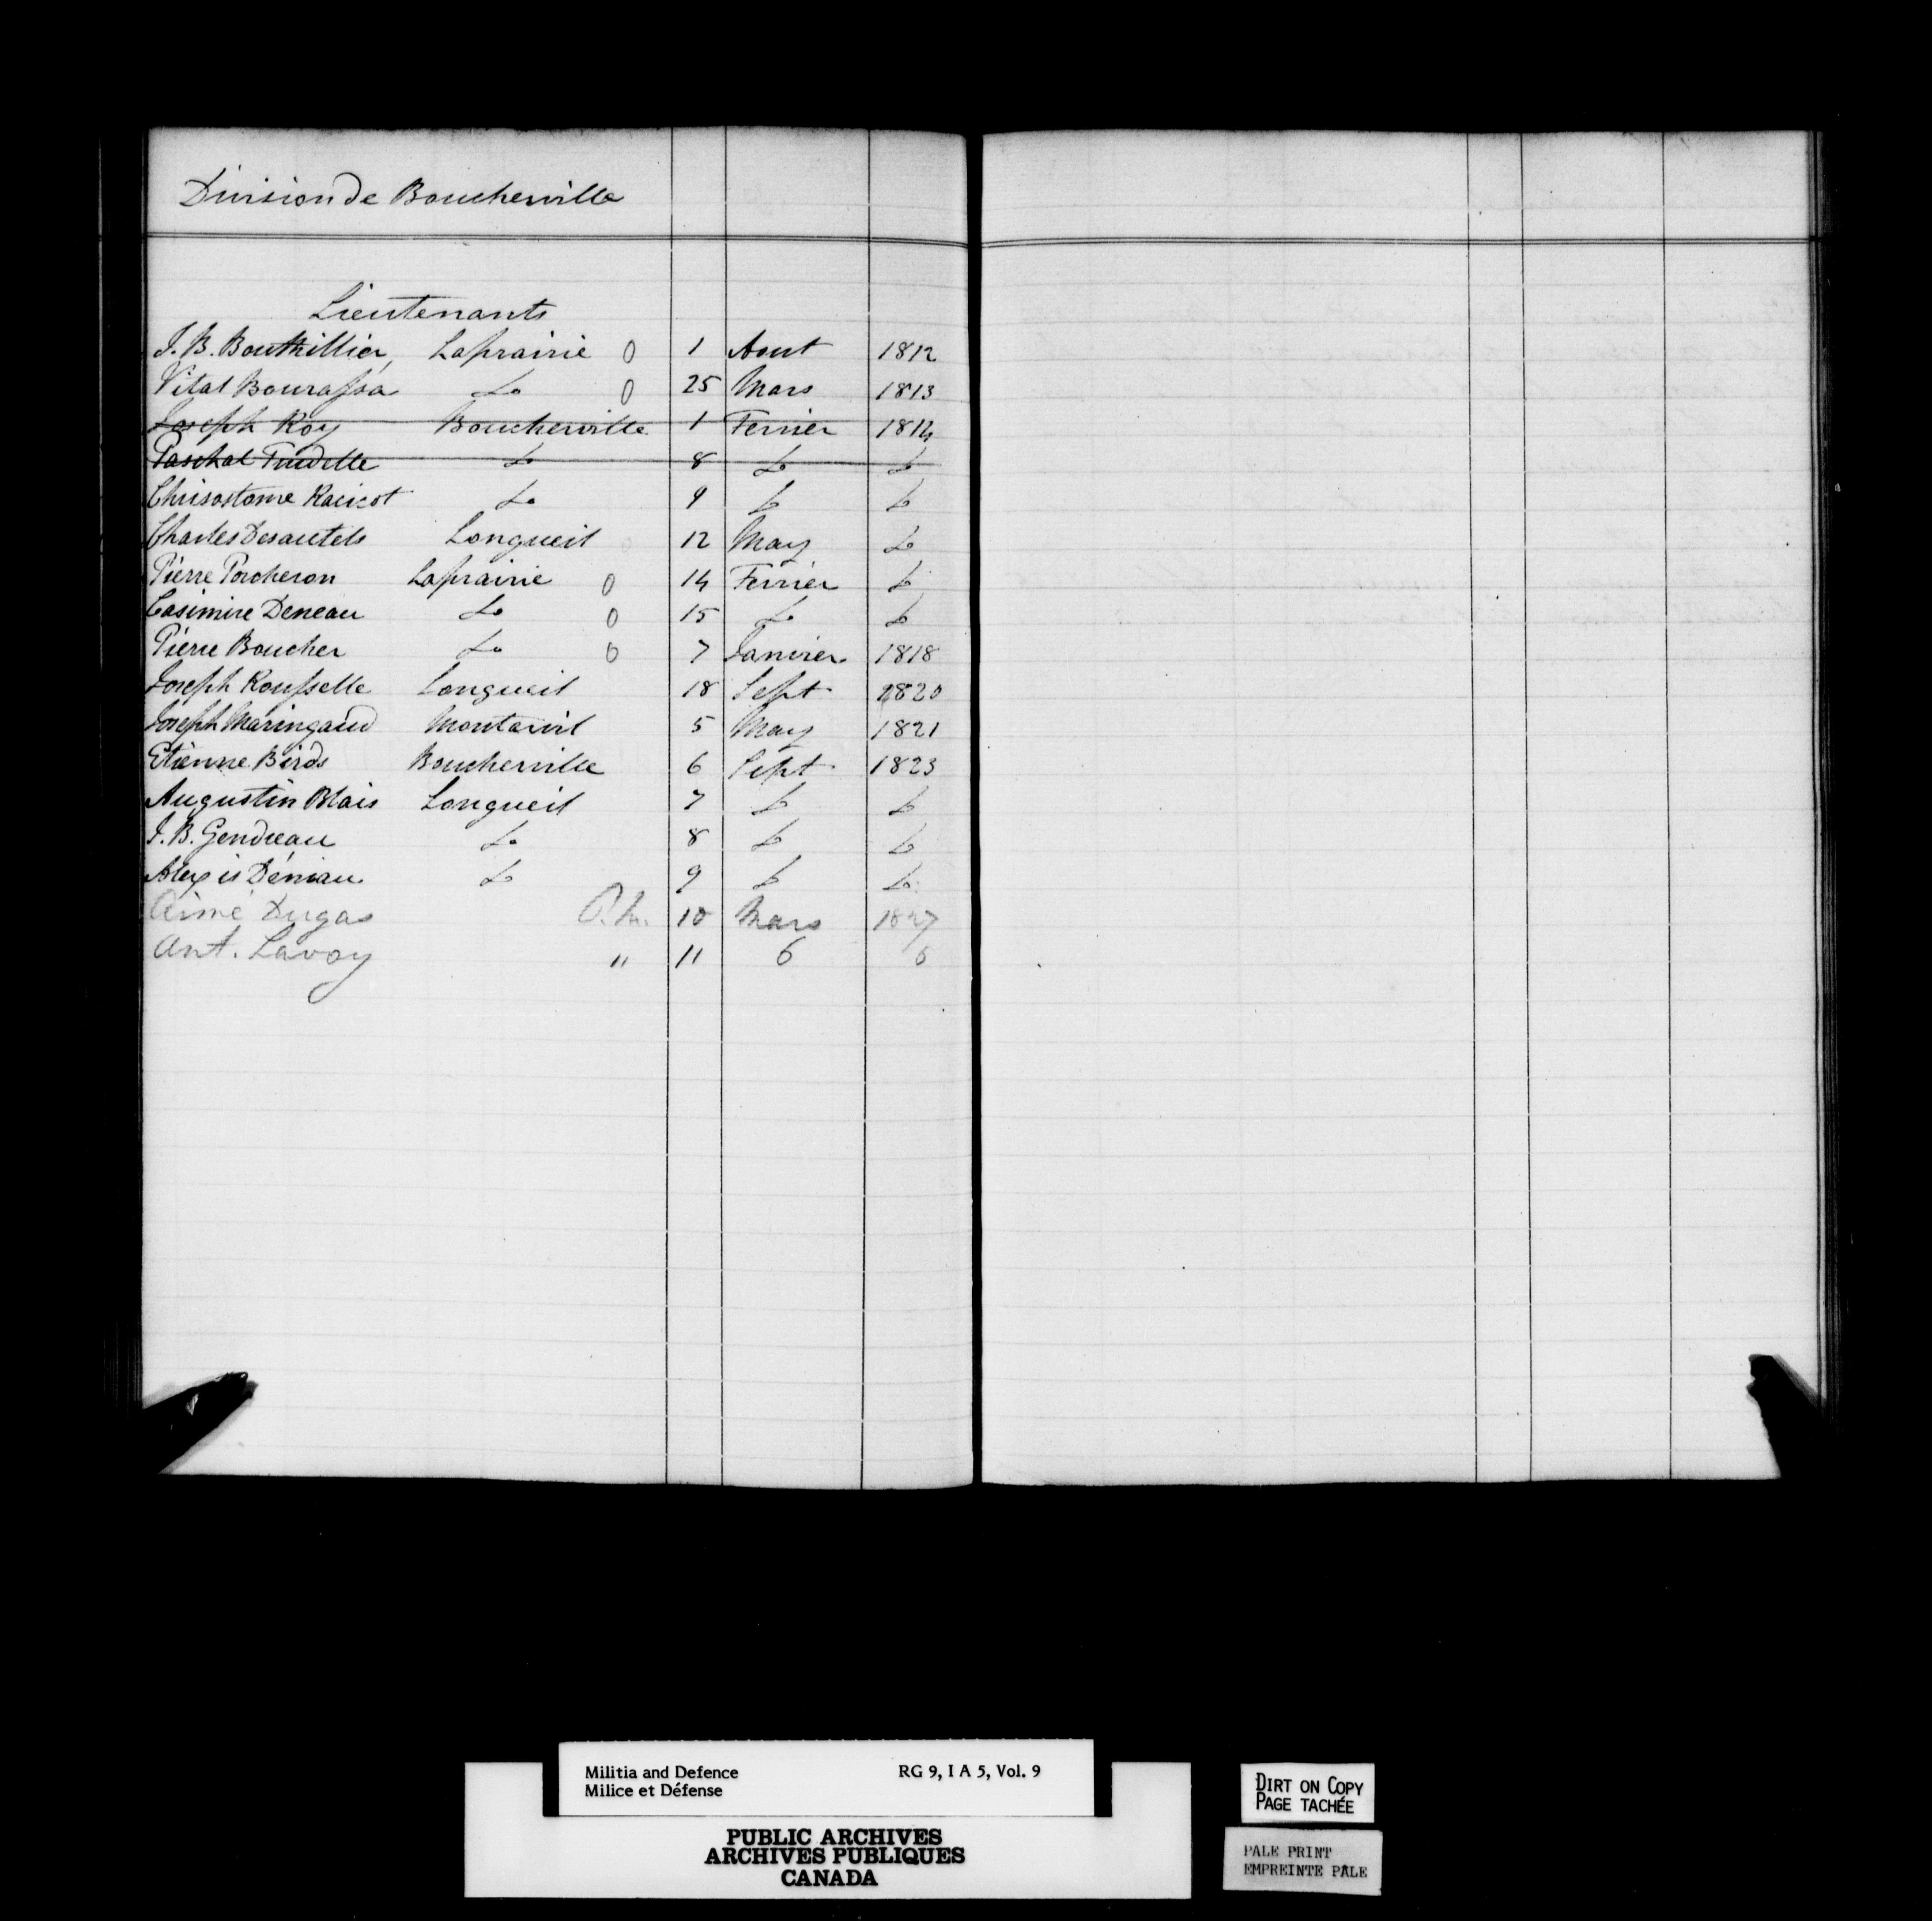 Division de Boucherville
Lieutenants
J. B. Bouthillier, Laprairie 0 1 Aout 1812
Vital Bourassa Do 0 25 Mars 1813
Joseph Roy Boucherville 1 Fevrier 1814
Paschal Trudelle Do 8 Do Do
Chrisostome Racicot Do 9 Do Do
Charles Desautels Longueil 0 12 May Do
Pierre Porcheron Laprairie 0 14 Fevrier Do
Casimire Deneau Do 0 15 Do Do
Pierre Boucher Do 0 7 Janvier 1818
Joseph Rousselle Longueil 18 Sept 1820
Joseph Maringaud Montarvil 5 May 1821
Etienne Birds Boucherville 6 Sept 1823
Augustin Blais Longueil 7 Do Do
J. B. Gendreau Do 8 Do Do
Alexis Déniau Do 9 Do Do
Aimé Dugas 10 Mars
Ant. Lavoy " 11 6 6
Militia and Defence RG 9, I A 5, Vol. 9
Milice et Défense
PUBLIC ARCHIVES
ARCHIVES PUBLIQUES
CANADA
DIRT ON COPY
PAGE TACHÉE
PALE PRINT
EMPREINTE PALE